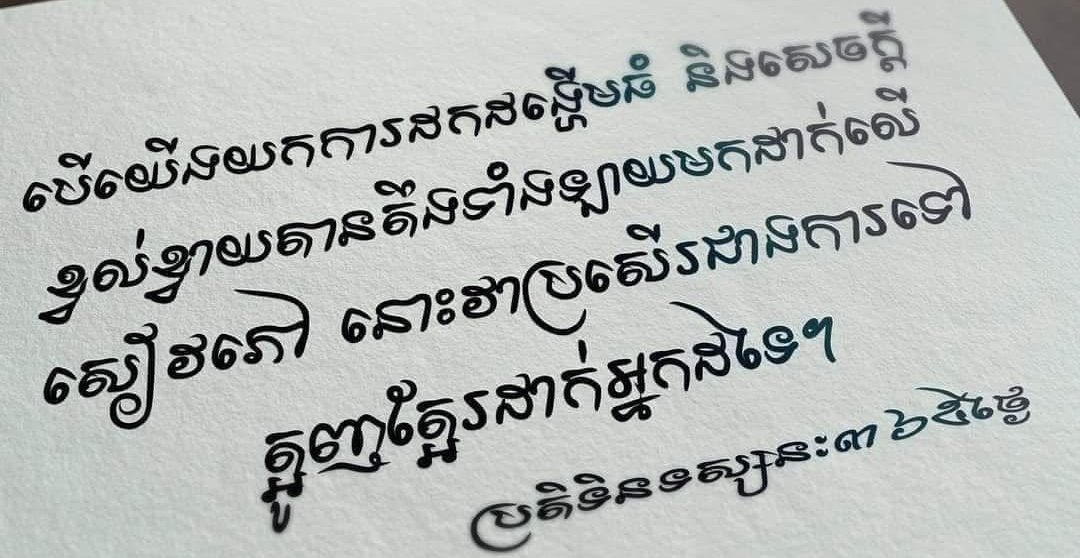 បើយើងយកការដកដង្ហើមធំ និងសេចក្ដី
ខ្វល់ខ្វាយតានតឹងទាំងឡាយមកដាក់លើ
សៀវភៅ នោះវាប្រសើរជាងការទៅ
ត្អូញត្អែរដាក់អ្នកដទៃៗ
ប្រតិទិនទស្សនះ៣៦៥ថ្ងៃ